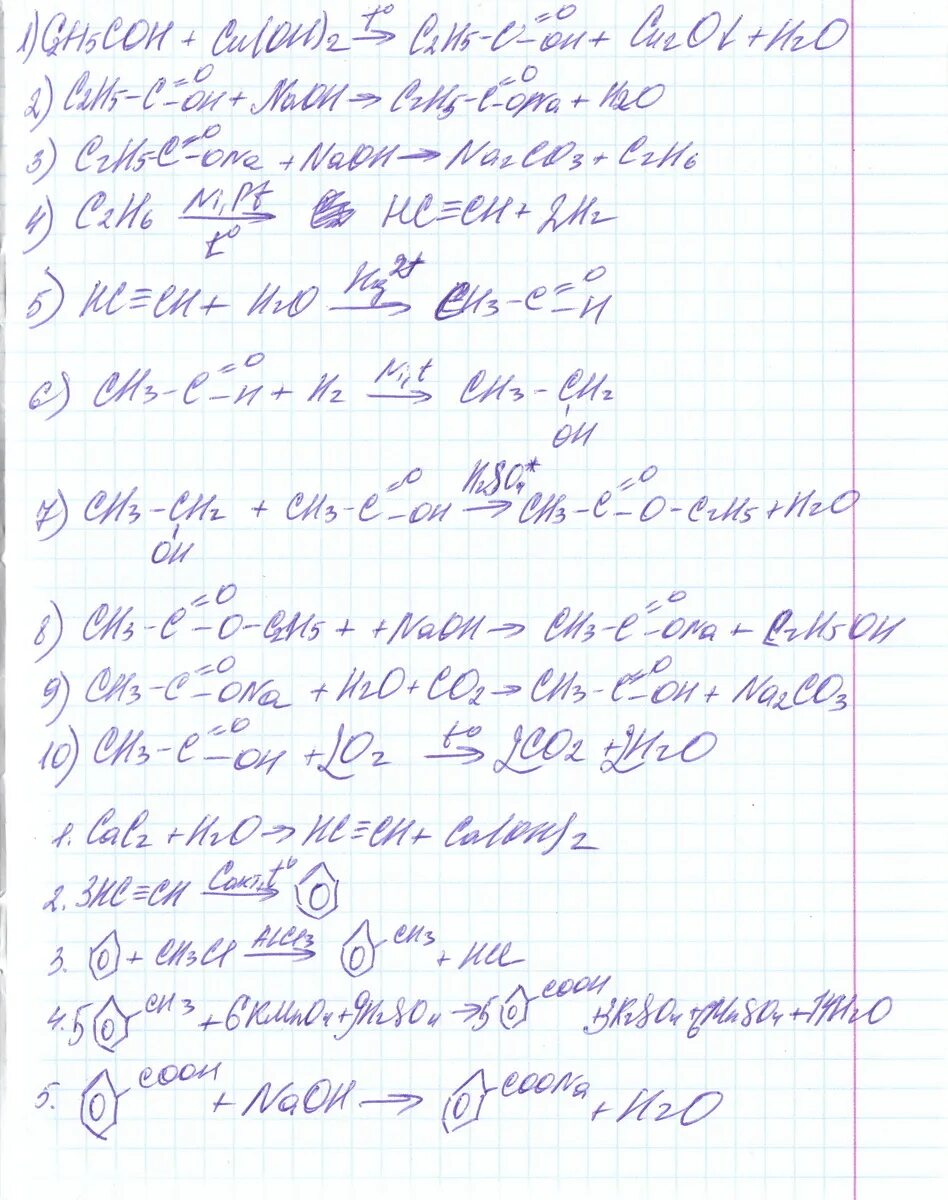 1) C2H5COH + Cu(OH)2 →t° C2H5-C=O-OH + Cu2O↓ + H2O
2) C2H5-C=O-OH + NaOH → C2H5-C=O-ONa + H2O
3) C2H5-C=O-ONa + NaOH → Na2CO3 + C2H6
4) C2H6 →Ni, Pt t° HC≡CH + 2H2
5) HC≡CH + H2O →Hg2+ CH3-C=O-H
6) CH3-C=O-H + H2 →Ni, t CH3-CH2-OH
7) CH3-CH2-OH + CH3-C=O-OH →H2SO4* CH3-C=O-O-C2H5 + H2O
8) CH3-C=O-O-C2H5 + + NaOH → CH3-C=O-ONa + C2H5OH
9) CH3-C=O-ONa + H2O + CO2 → CH3-C=O-OH + Na2CO3
10) CH3-C=O-OH + 2O2 →t° 2CO2 + 2H2O
1. CaC2 + H2O → HC≡CH + Ca(OH)2
2. 3HC≡CH →Cакт, t°
3. + CH3Cl →AlCl3 CH3 + HCl
4. 5 CH3 + 6KMnO4 + 9H2SO4 → 5 COOH + 3K2SO4 + 6MnSO4 + 14H2O
5. COOH + NaOH → COONa + H2O